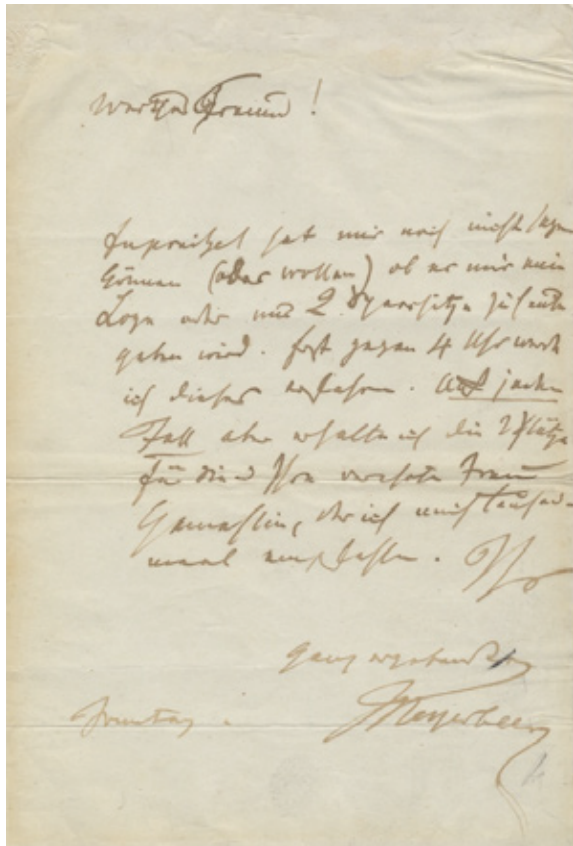 Werther Freund!
hat mir noch nicht sagen
können (oder wollen) ob er mir eine
Loge oder nur 2 Sperrsitze für heute
geben wird. Erst gegen 4 Uhr werde
ich dieses erfahren. Auf jeden
Fall aber erhalte ich die 2 Plätze
für Sie u Ihre verehrte Frau
Gemahlin, der ich mich tausend-
mal empfehle. Ihr
ganz ergebenster
Meyerbeer
Sonntag.